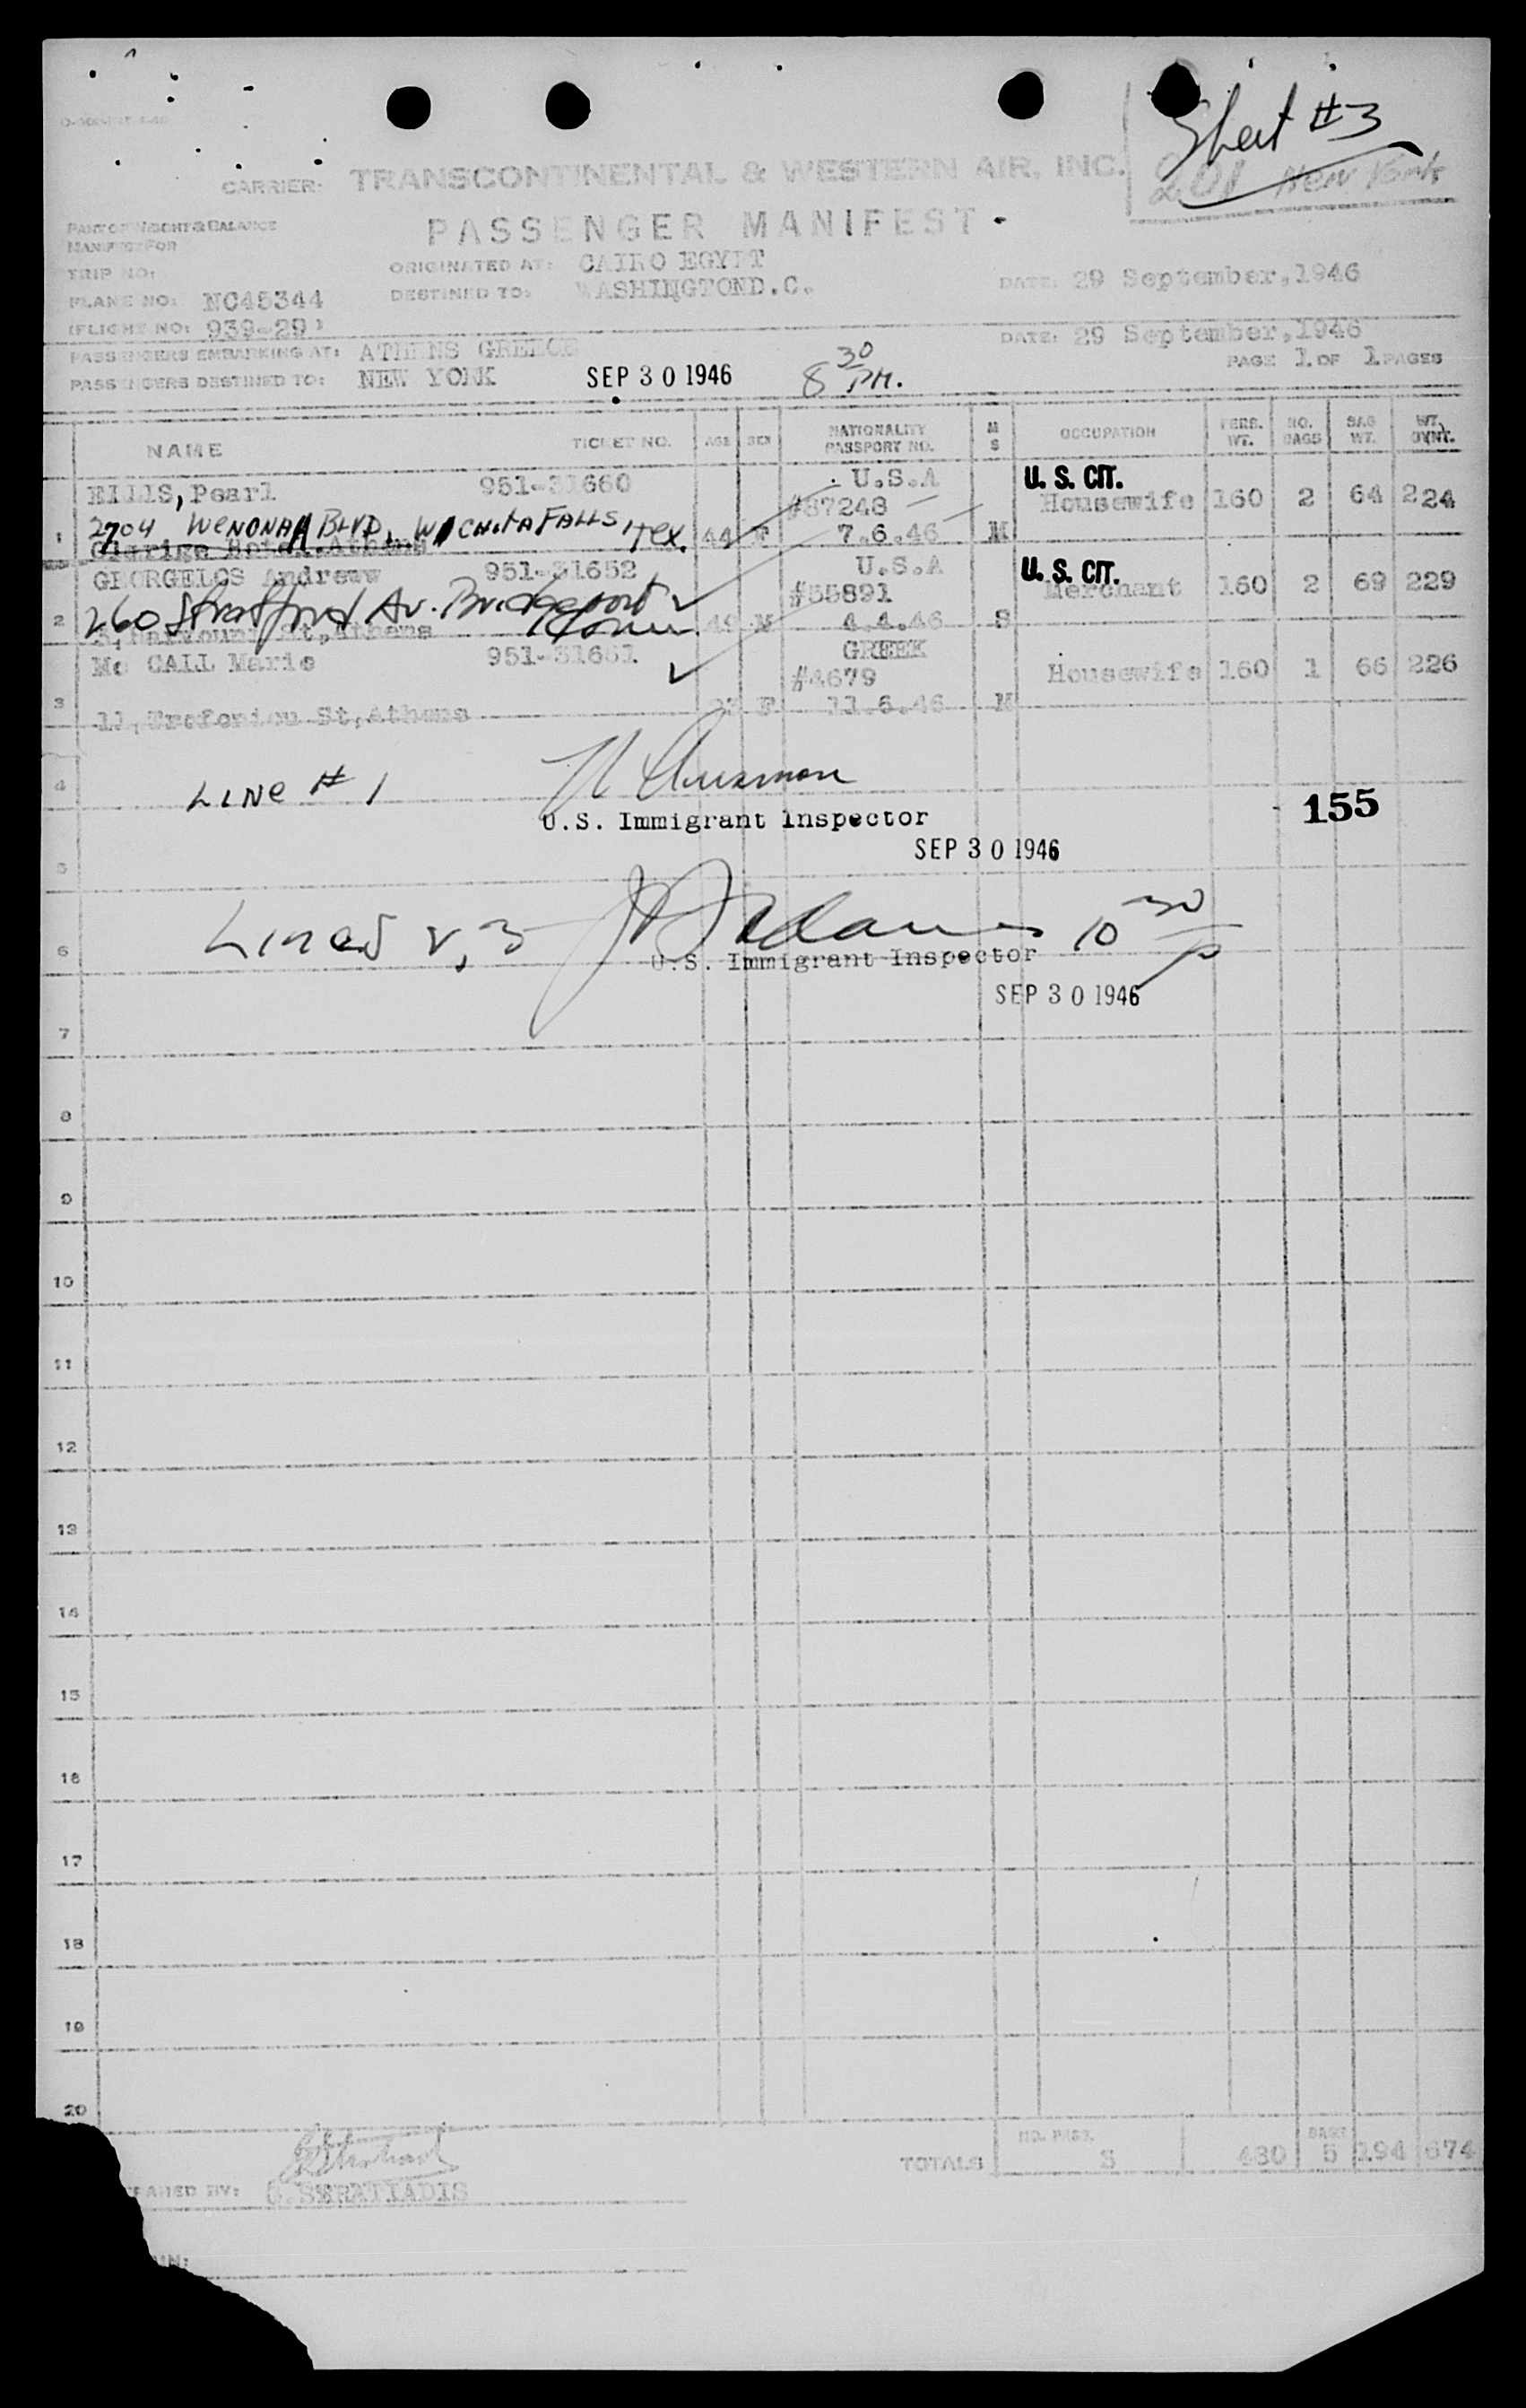 Sheet #3
CARRIER: TRANSCONTINENTAL & WESTERN AIR, INC.
201 New York
PART OF WEIGHT & BALANCE
MANIFEST FOR
PASSENGER MANIFEST
TRIP NO:
ORIGINATED AT: CAIRO EGYPT
DATE: 29 September, 1946
PLANE NO: NC45344
DESTINED TO: WASHINGTOND.C.
(FLIGHT NO: 939-29)
DATE: 29 September, 1946
PASSENGERS EMBARKING AT: ATHENS GREECE
PAGE 1 OF 1 PAGES
PASSENGERS DESTINED TO: NEW YORK SEP 30 1946 8 30 PM.
NAME TICKET NO. AGE SEX NATIONALITY PASSPORT NO. M S OCCUPATION PERS. WT. NO. BAGS BAG WT. WT.
ELLIS, Pearl 951-31660 U.S.A U. S. CIT.
#87248 Housewife 160 2 64 224
2704 WENONAH BLVD. WICHITA FALLS, Tex.
1 Claridge Hotel, Athens 44 F 7.6.46 M
GEORGELOS Andrew 951-31652 U.S.A U. S. CIT.
#55891 Merchant 160 2 69 229
260 Stratford Av. Bridgeport Conn.
2 St, Athens 49 M 4.4.46 S
Mc CALL Marie 951-31661 GREEK
#4679 Housewife 160 1 66 226
3 11, St, Athens F 11.6.46 M
4 LINE # 1
U.S. Immigrant Inspector 155
SEP 30 1946
5
6 Lines 2, 3 10 30 p
U.S. Immigrant Inspector
SEP 30 1946
7
8
9
10
11
12
13
14
15
16
17
18
19
20
NO. PASS. BAGS
TOTALS 3 480 5 194 674
PARED BY: G. SERATIADIS